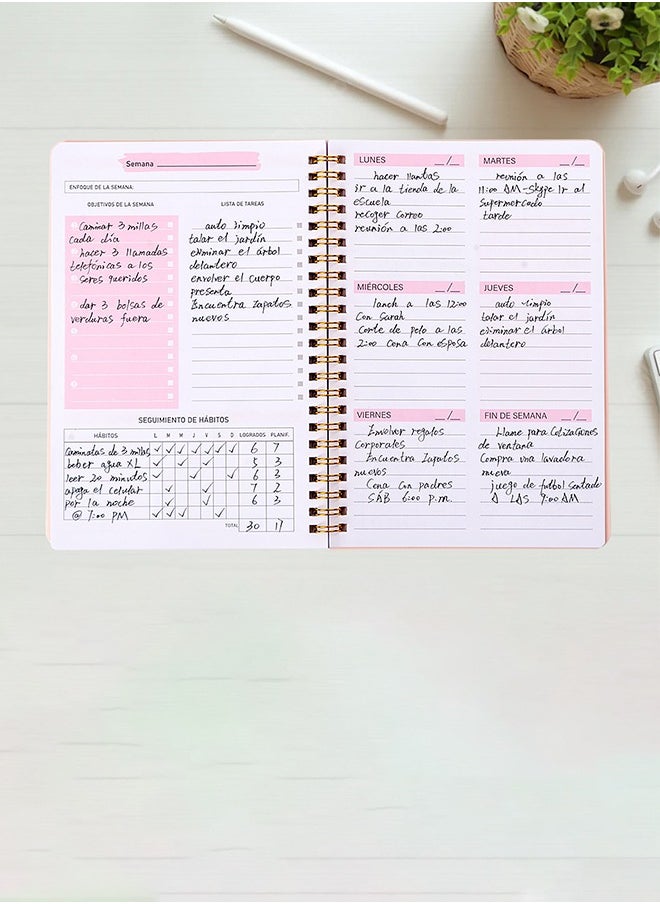 Semana
ENFOQUE DE LA SEMANA:
OBJETIVOS DE LA SEMANA
Caminar 3 millas
cada día
hacer 3 llamadas
telefónicas a los
seres queridos
dar 3 bolsas de
verduras fuera
LISTA DE TAREAS
auto limpio
talar el jardín
eliminar el árbol
delantero
envolver el cuerpo
presenta
Encuentra Zapatos
nuevos
SEGUIMIENTO DE HÁBITOS
HÁBITOS L M M J V S D LOGRADOS PLANIF.
caminatas de 3 millas ✓ ✓ ✓ ✓ ✓ ✓ ✓ 6 7
beber agua XL ✓ ✓ ✓ 5 3
leer 20 minutos ✓ ✓ ✓ 6 3
apaga el celular ✓ ✓ 7 2
por la noche ✓ ✓ 6 3
@ 7:00 PM ✓ ✓ ✓ ✓
TOTAL 30 17
LUNES __/__
hacer llantas
ir a la tienda de la
escuela
recoger correo
reunión a las 2:00
MARTES __/__
reunión a las
11:00 AM-Skype Ir al
Supermercado
tarde
MIÉRCOLES __/__
lanch a las 12:00
Con Sarah
Corte de pelo a las
2:00 Cena Con esposa
JUEVES __/__
auto limpio
talar el jardín
eliminar el árbol
delantero
VIERNES __/__
Envolver regalos
Corporales
Encuentra Zapatos
nuevos
Cena Con padres
SAB 6:00 p.m.
FIN DE SEMANA __/__
Llame para Cotizaciones
de ventana
Compra una lavadora
nueva
juego de futbol sentado
A LAS 9:00 AM